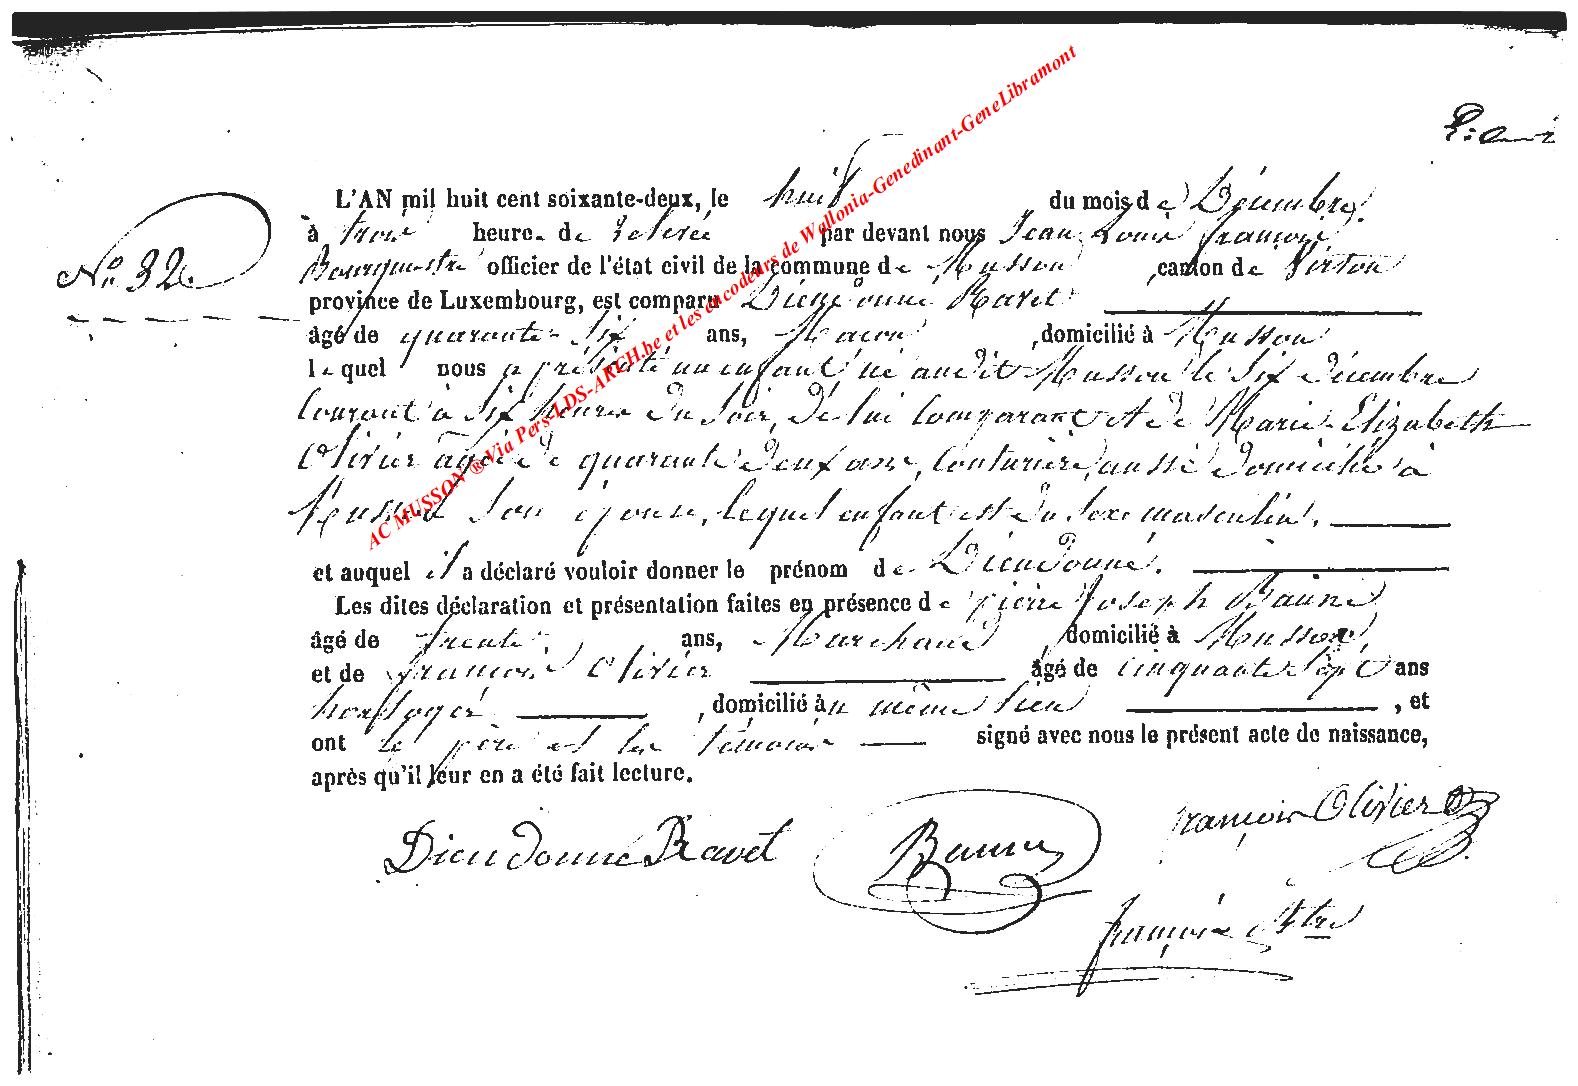 L'AN mil huit cent soixante-deux, le huit du mois de Décembre
No 32. à trois heure. de relevée par devant nous Jean Louis françois
Bourgmestre officier de l'état civil de la commune de Musson, canton de Virton
province de Luxembourg, est comparu Dieudonné Ravet
âgé de quarante-six ans, Maçon, domicilié à Musson
lequel nous a présenté un enfant né audit Musson le six décembre
Courant à six heures du soir, de lui Comparant et de Marie Elizabeth
Olivier âgée de quarante deux ans, Couturière, aussi domiciliée à
Musson son épouse, lequel enfant est du sexe masculin.
et auquel il a déclaré vouloir donner le prénom de Dieudonné.
Les dites déclaration et présentation faites en présence de pierre Joseph
âgé de trente ans, Marchand, domicilié à Musson,
et de françois Olivier âgé de cinquante sept ans
horloger, domicilié au même lieu, et
ont le père et les témoins signé avec nous le présent acte de naissance,
après qu'il leur en a été fait lecture.
Dieudonné Ravet
françois Olivier
françois
AC MUSSON ® Via Pers-LDS-ARCH.be et les encodeurs de Wallonia-Genedinant-GeneLibramont